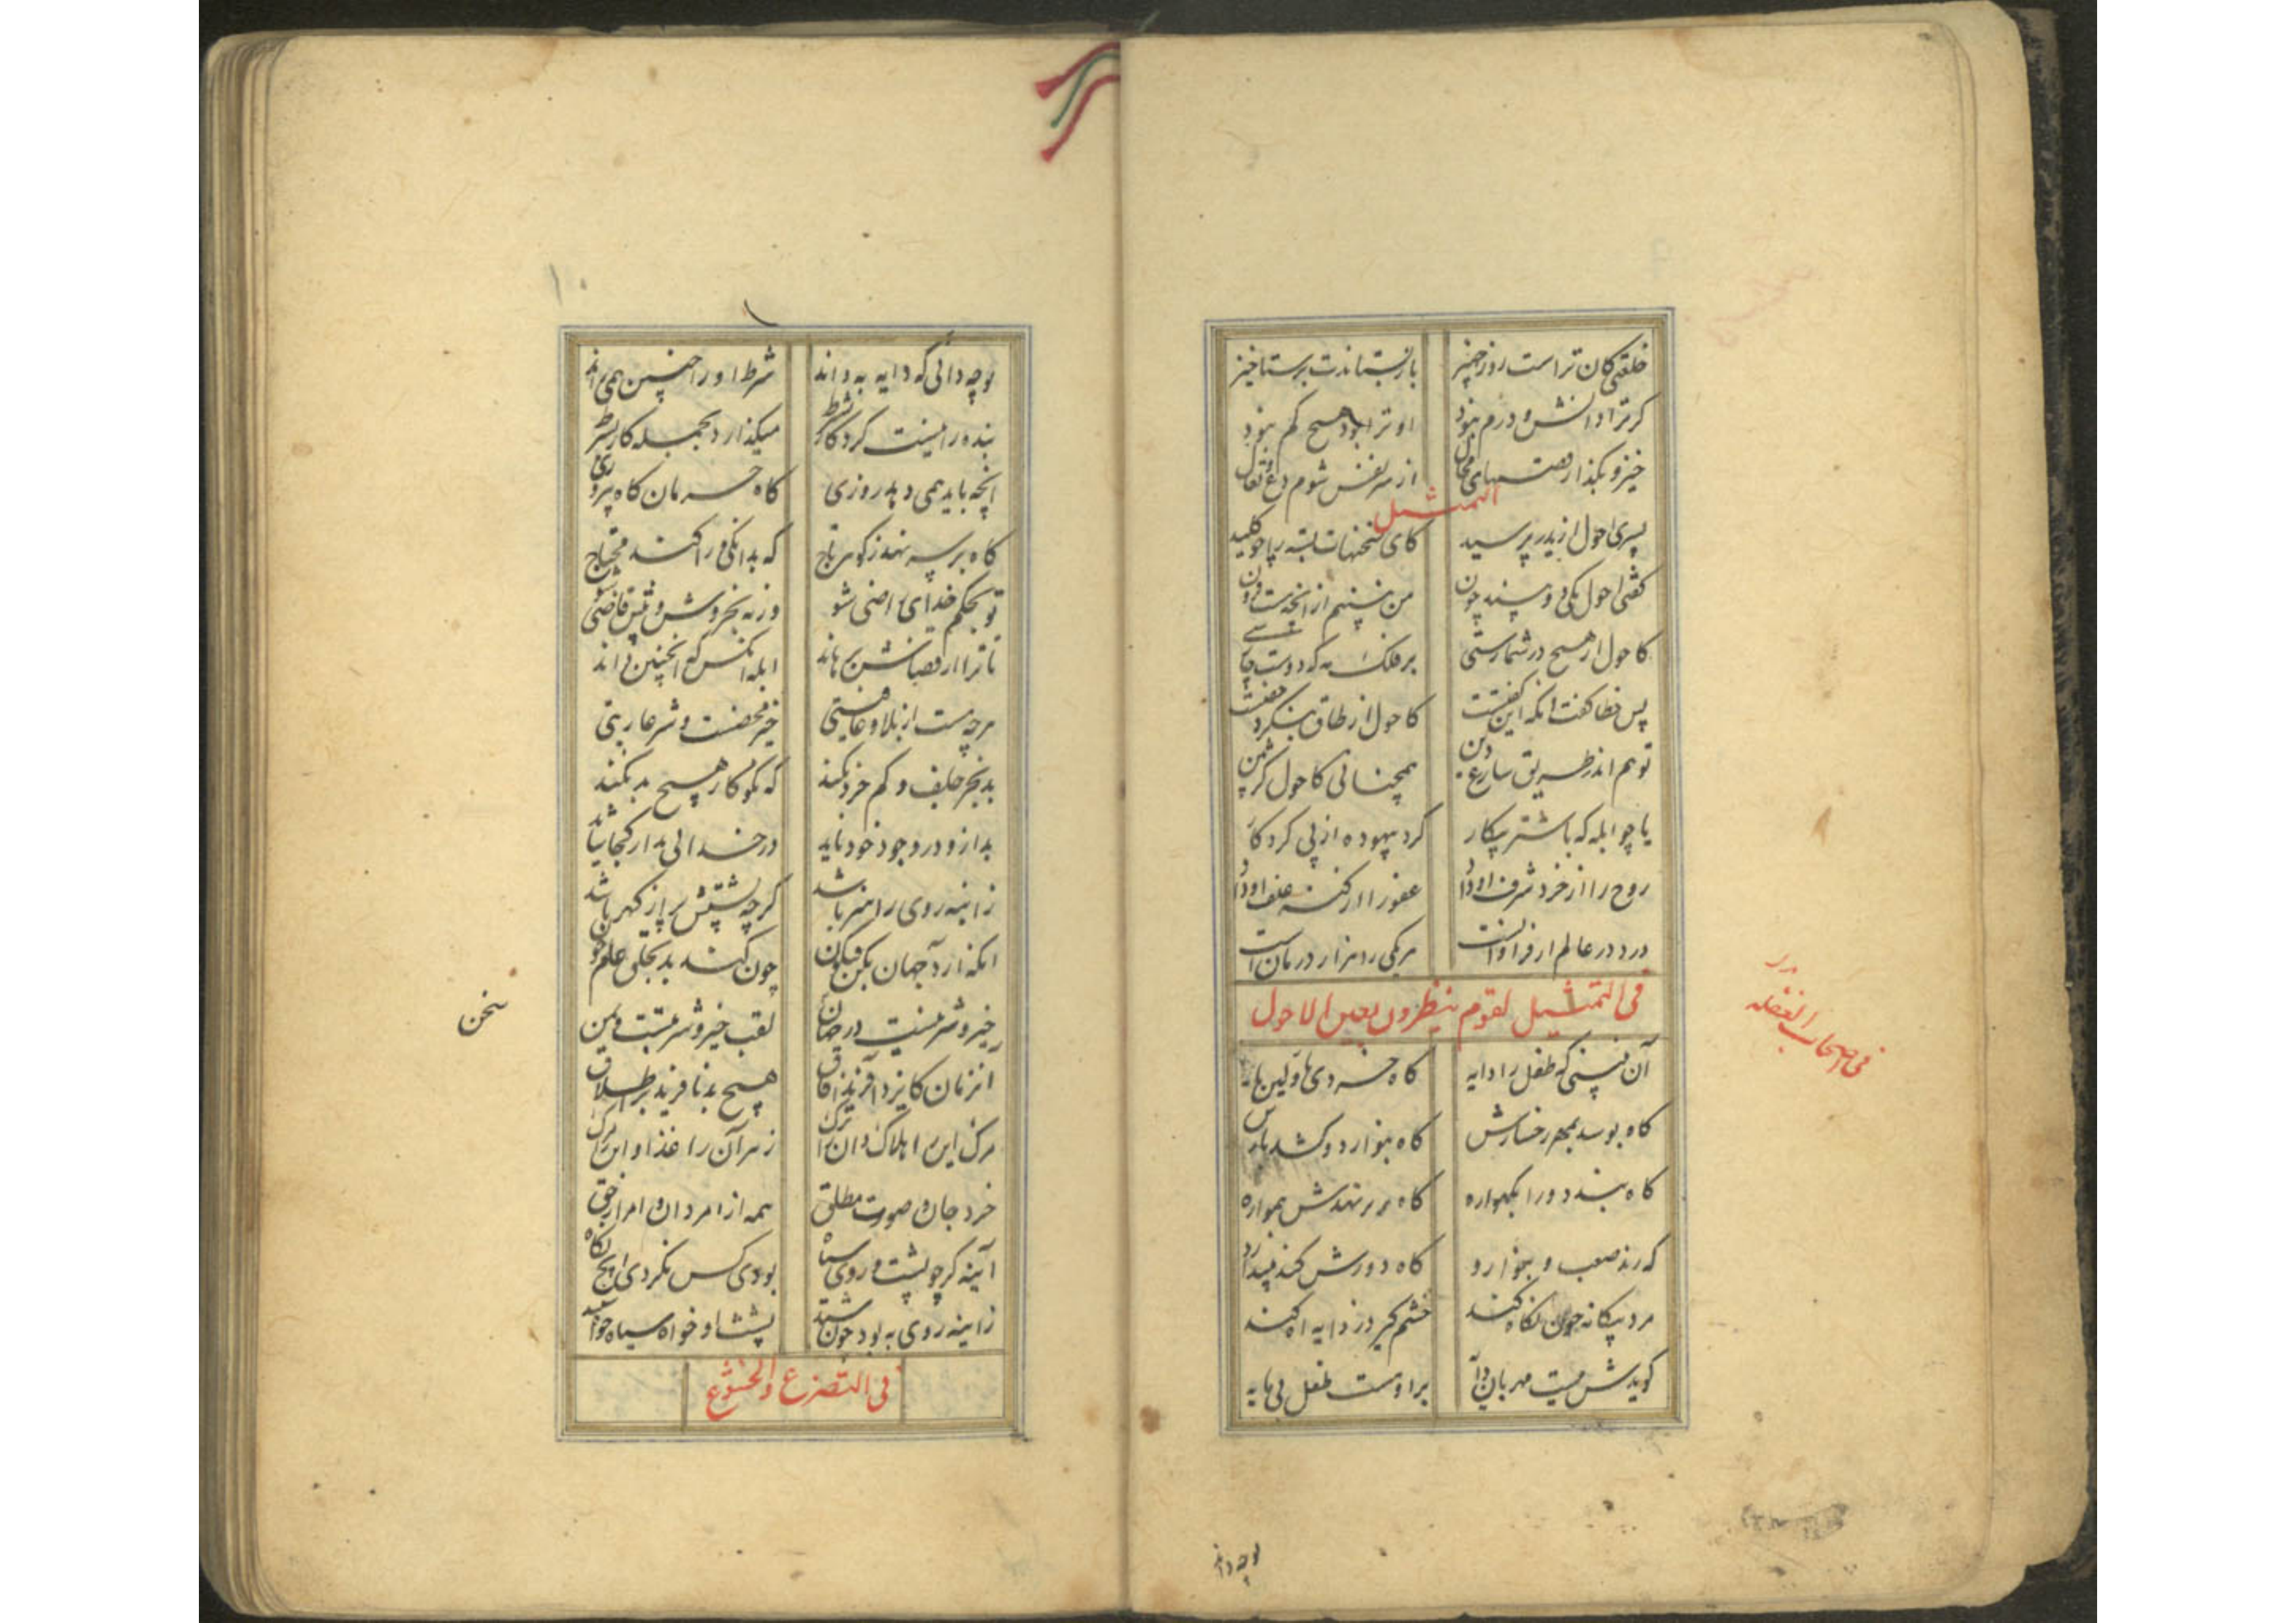 خلعتی کان تراست روز جهیز بازنستاندت برستاخیز
کر ترا دانش و درم نبود او ترا بود هیچ کم نبود
خیز و بگذار قصهای محال از سر نفس شوم دع و تعال
التمثیل
پسری احول از پدر پرسید کای سخنهات بسته را چو کلید
کفتی احول یکی دو بیند چون من نبینم از انچه هست فزون
کاحول ار هیچ در شمارستی بر فلک مه که دوست چارستی
پس خطا کفت انکه این کفتست کاحول ار طاق بنکرد جفتست
توهم اندر طریق شارع دین همچنانی کاحول کژبین
یا چو ابله که با شتر پیکار کرد بیهوده از پی کردکار
روح را از خرد شرف او داد عفو را از کنه علف او داد
درد در عالم ار فراوانست هر یکی را هزار درمانست
فی التمثیل لقوم ینظرون بعین الاحول
فی اصحاب الغفله
آن نبینی که طفل را دایه کاه خردی هاولین هایه
کاه بوسد بمهر رخسارش کاه بنوازد و کشد بارش
کاه بندد ورا بکهواره کاه بر بر نهدش همواره
که زند صعب و بنوازد کاه دورش کند بیندازد
مرد بیکانه چون نکاه کند خشم کیرد ز دایه اه کند
کویدش نیست مهربان دایه بر او هست طفل بی مایه
تو چه دانی که دایه به داند شرط او را چنین همی داند
بنده را نیست کردکار بشرط میکذارد بجمله کار بشرط
انچه باید همی دهد روزی کاه حرمان کاه پیروزی
کاه بر سر نهد ز کوهر تاج که بدانکی ورا کند محتاج
تو بحکم خدای راضی شو ورنه بخروش و پیش قاضی شو
تا ترا از قضاش برهاند ابله انکس که انچنین داند
هر چه هست از بلا و عافیتی خیر محضست و شر عاریتی
بد بجز جلف و کم خرد نکند که نکوکار هیچ بد نکند
بد ازو در وجود خود ناید در خدائی بد از کجا شاید
زاینه روی را هنر باشد کرچه پشتش پر از کهر باشد
انکه آرد جهان بکن فیکون چون کند بد بخلق عالم چون
خیر و شر نیست در جهان سخن لقب خیر و شر بتست و بمن
انزمان کایزد آفرید افاق هیچ بد نافرید بر اطلاق
مرک این را هلاک و ان را برک زهر آن را غذا و این را مرک
خرد و جان و صورت مطلق همه از امر دان و امر از حق
آینه کر چو پشت و روی سیاه بودی کس نکردی هیچ نکاه
زاینه روی به بود چون شید پشت او خواه سیاه خواه سپید
فی التضرع و الخشوع
سخن
تو چه دانی